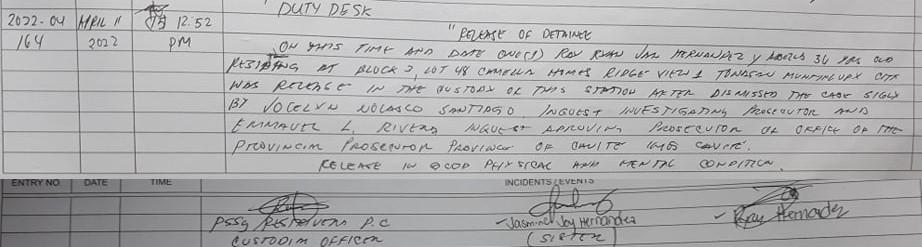 DUTY DESK
2022-04 APRIL 11 12:52 "RELEASE OF DETAINEE
164 2022 PM ON THIS TIME AND DATE ONE(1) ROY RYAN JAN HERNANDEZ y 36 YRS OLD
RESIDING AT BLOCK 2, LOT 48 CAMELLA HOMES RIDGE VIEW 1 TUNASAN MUNTINLUPA CITY
WAS RELEASE IN THE CUSTODY OF THIS STATION AFTER DISMISSED THE CASE SIGN
BY JOCELYN NOLASCO SANTIAGO INQUEST INVESTIGATING PROSECUTOR AND
EMMANUEL L. RIVERA INQUEST APROVING PROSECUTOR OF OFFICE OF THE
PROVINCIAL PROSECUTOR PROVINCE OF CAVITE IMUS CAVITE.
RELEASE IN GOOD PHYSICAL AND MENTAL CONDITION.
ENTRY NO. DATE TIME INCIDENTS/EVENTS
PSSg P.C Jasmine Joy Hernandez Roy Hernandez
CUSTODIAN OFFICER (SISTER)